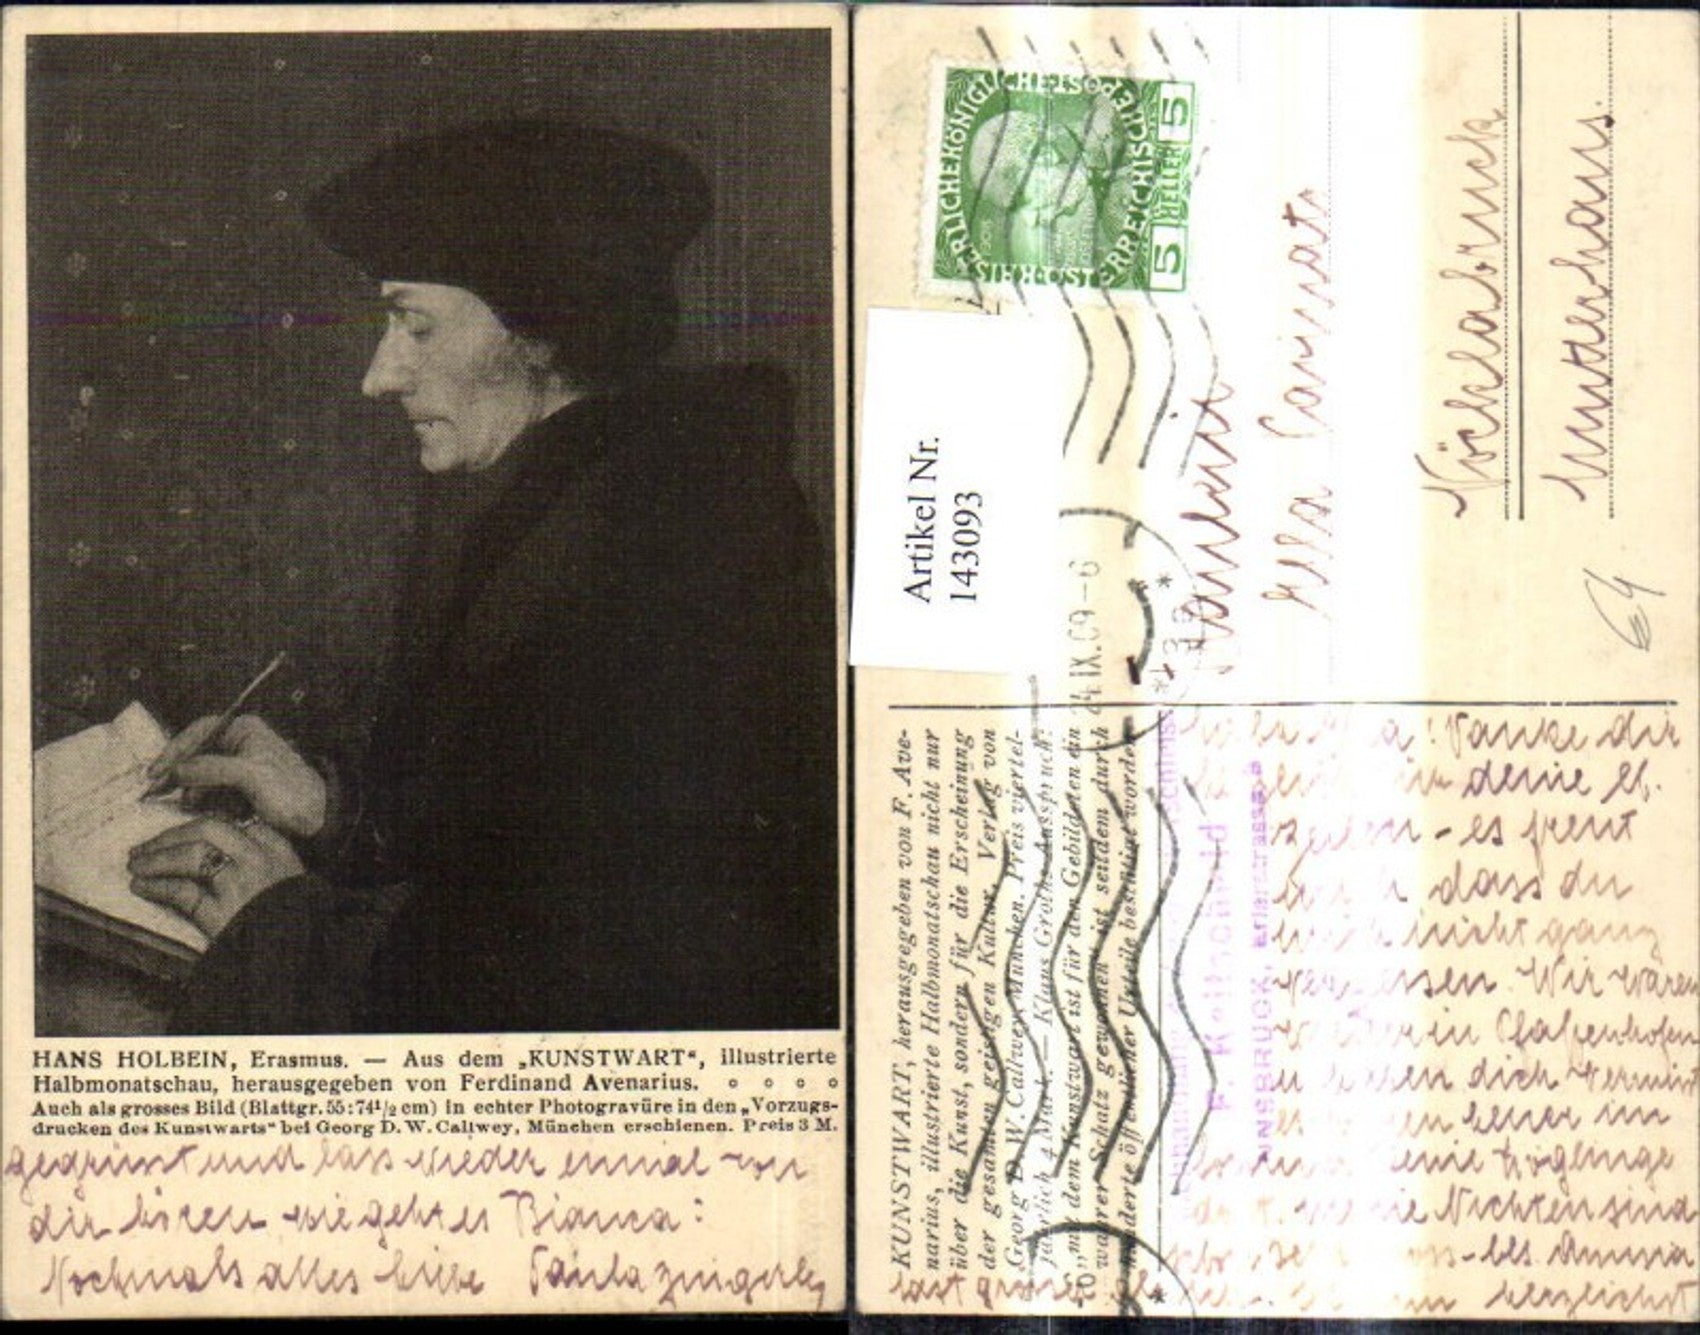 HANS HOLBEIN, Erasmus. — Aus dem „KUNSTWART“, illustrierte
Halbmonatschau, herausgegeben von Ferdinand Avenarius.
Auch als grosses Bild (Blattgr. 55:74½ cm) in echter Photogravüre in den „Vorzugs-
drucken des Kunstwarts“ bei Georg D. W. Callwey, München erschienen. Preis 3 M.
gegrüsst und lass wieder einmal von
dir hören wie geht es Bianca:
Nochmals alles liebe Paula
KAISERLICHE KÖNIGLICHE ÖSTERREICHISCHE POST
5 HELLER 5
Artikel Nr.
143093
24 IX. 09 - 6
Fräulein
Ella
Vöcklabruck
Mutterhaus.
€4
KUNSTWART, herausgegeben von F. Ave-
narius, illustrierte Halbmonatschau nicht nur
über die Kunst, sondern für die Erscheinung
der gesamten geistigen Kultur. Verlag von
Georg D. W. Callwey, München. Preis viertel-
jährlich 4 Mark. — Klaus Groths Ausspruch:
„mit dem Kunstwart ist für den Gebildeten ein
wahrer Schatz gewonnen“ ist seitdem durch
hunderte öffentlicher Urteile bestätigt worden.
INNSBRUCK, Erlerstrasse
Danke dir
deine lb.
Zeilen - es freut
mich dass du
mich nicht ganz
vergessen. Wir waren
in Pfaffenhofen
haben dich vermisst
heuer im
Zöglinge
Nichten sind
gross - bes. Anna
lasst grüssen